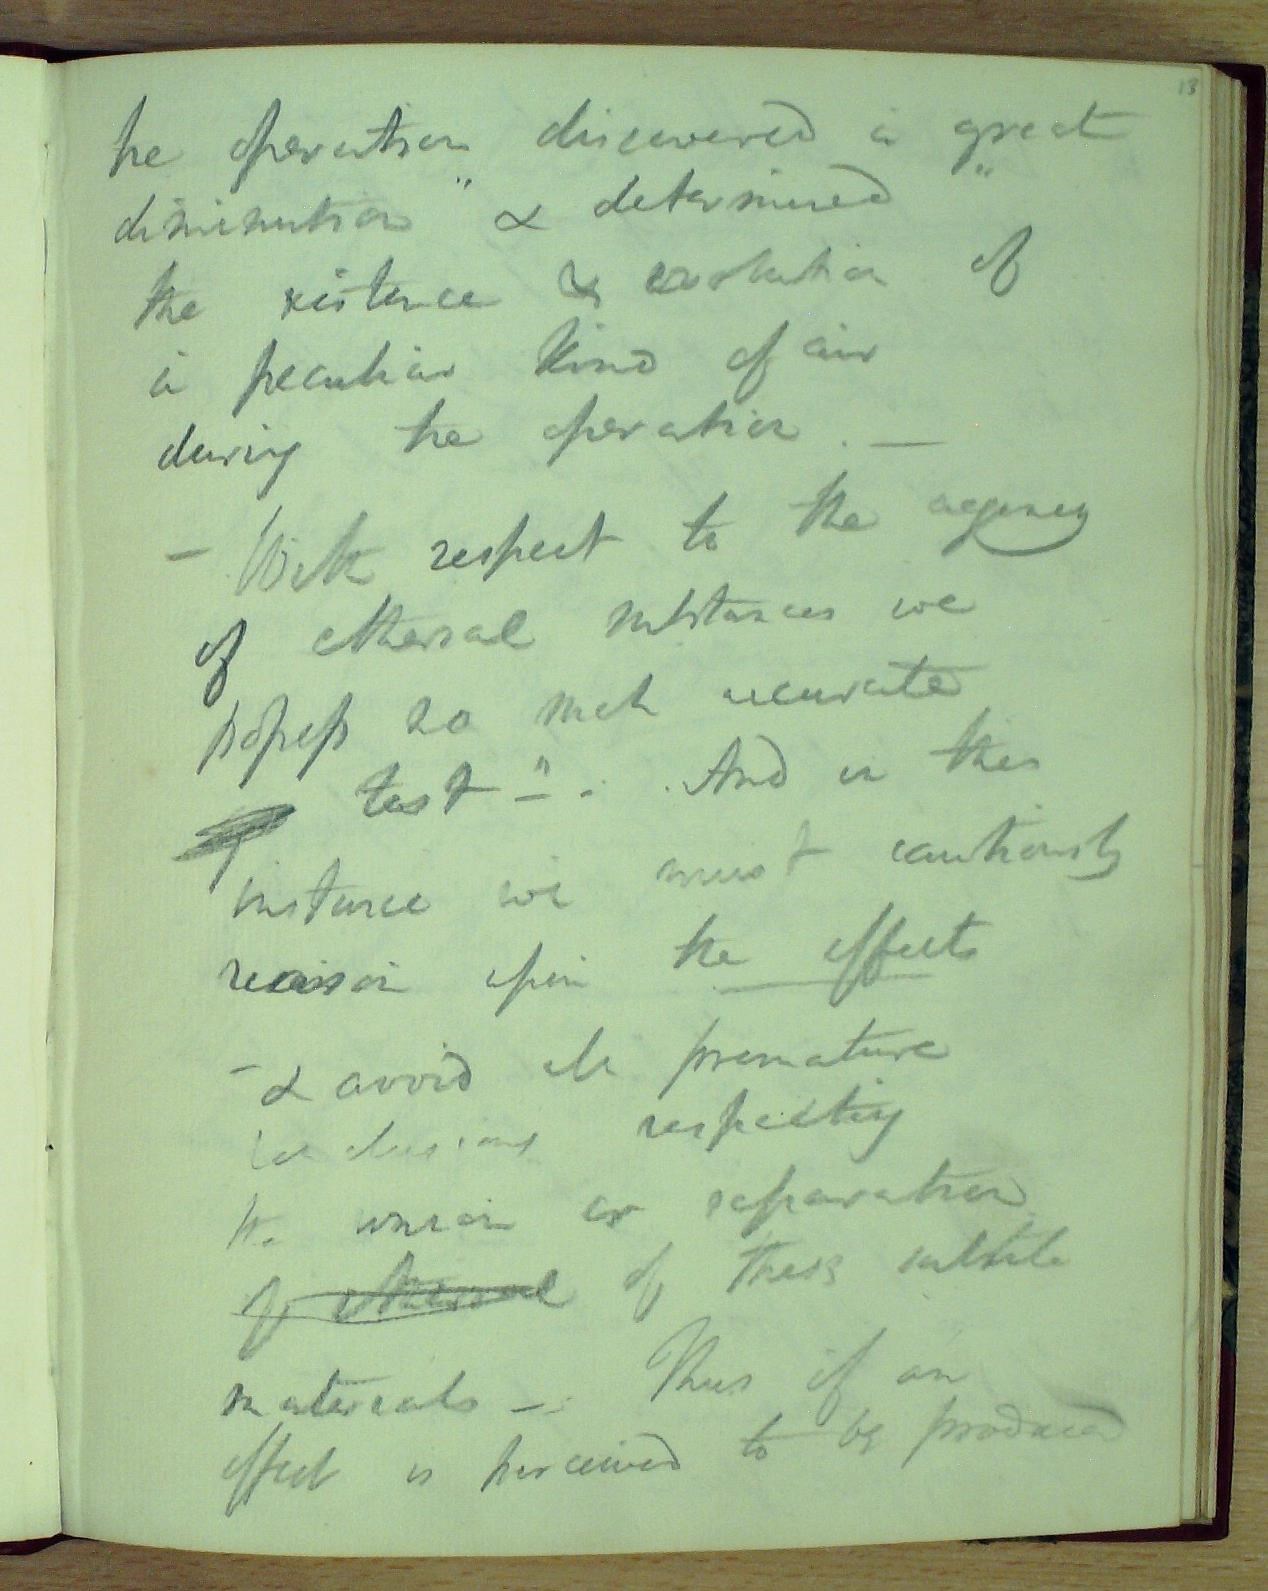 13
he operation discovered a great
diminution" & determined
the xistence & evolution of
a peculiar kind of air
during the operation. —
— With respect to the agency
of ethereal substances we
possess no such accurate
test" — . And in this
instance we must cautiously
reason upon the effects
— & avoid all premature
conclusions respecting
the union or separation
of ethereal of these subtile
materials — Thus if an
effect is perceived to be produced